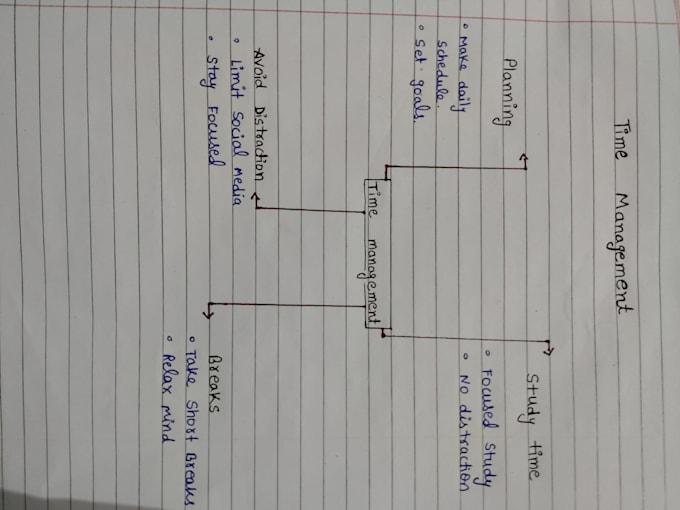 Time Management
Planning
• Make daily
schedule.
• Set goals.
Study time
• Focused Study
• No distraction
Time management
Avoid Distraction
• Limit Social media
• Stay Focused
Breaks
• Take Short Breaks
• Relax mind